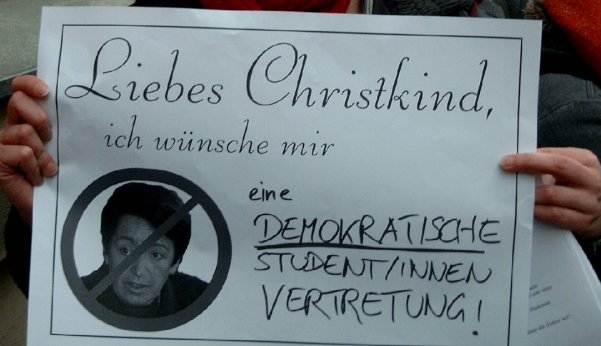 Liebes Christkind,
ich wünsche mir
eine
DEMOKRATISCHE
STUDENT/INNEN
VERTRETUNG!